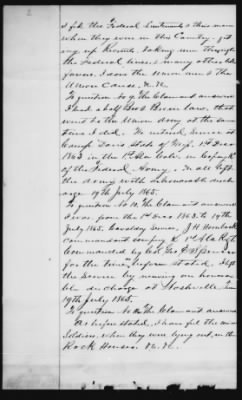 2
I fed the Federal Lieutenants & their men
when they were in the County. get
up Recruits, taking men through
the Federal lines, & many other like
favors. I done the Union and & the
Union Cause. &c. &c.
To question No 9. The Claimant answered
I had a half Bro & Bro in law, that
went to the Union Army at the same
time I did. We entered Service at
Camp Davis State of Miss. 1st Dec
1863 in the 1st Ala Calv. in Co
of the Federal Army. We all left
the Army with a honorable disch
arge 19th July 1865.
To question No 10. The Claimant answered
I was from the 1st Dec 1863 to 19th
July 1865. Cavalry Service, J H Hornback
commandant company K 1st Ala Regt
Commanded by Col Geo E Spencer
for the time before stated. I left
the Service by reason of honora
ble discharge at Nashville Tenn
19th July 1865.
To question No the Claimant answered
As before stated, I have fed the
Soldiers when they were lying out, in the
Rock Houses. &c. &c.